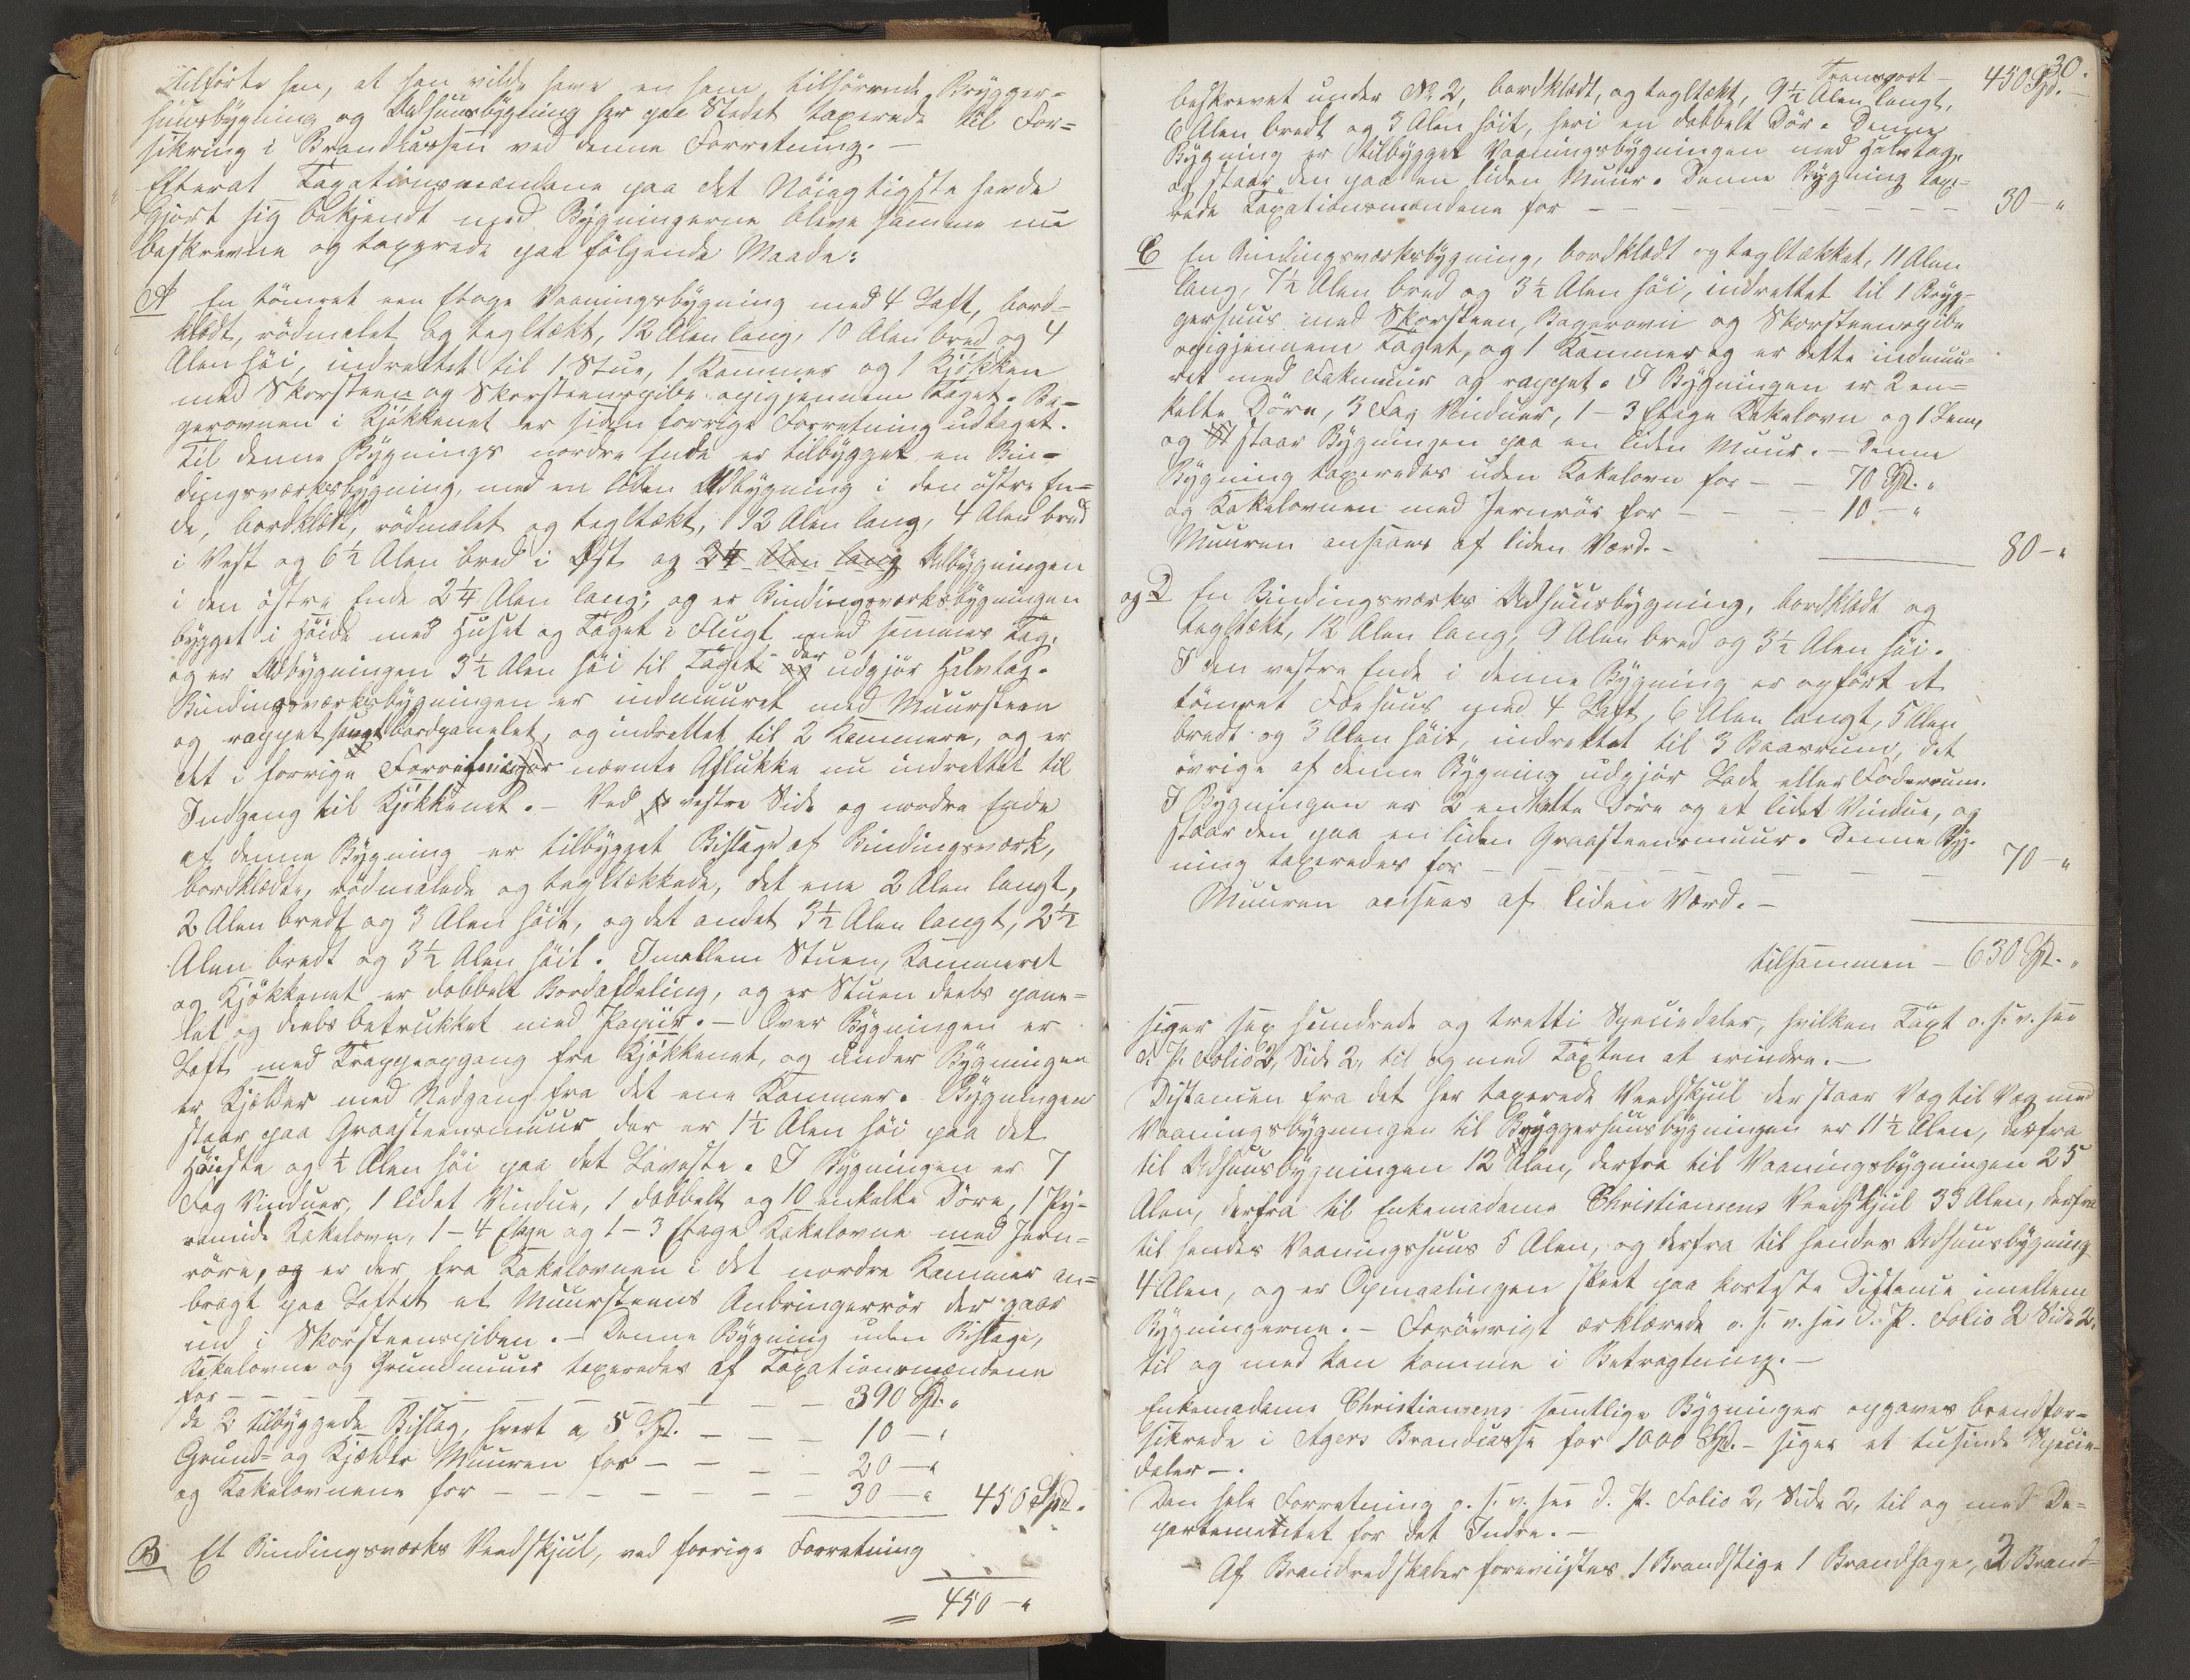 Tilførte han, at han vilde have en ham tilhørende Brygger-
huusbygning og Udhuusbygning her paa Stedet taxerede til For-
sikring i Brandkassen ved denne Forretning. –
Efterat Taxationsmændene paa det Nøiagtigste havde
gjort sig bekjendt med Bygningerne bleve samme nu
beskrevne og taxerede paa følgende Maade:
A En tømret een Etage Vaaningsbygning med 4 Laft, bord-
klædt, rødmalet og tegltækt, 12 Alen lang, 10 Alen bred og 4
Alen høi, indrettet til 1 Stue, 1 Kammer og 1 Kjøkken
med Skorsteen og Skorsteenspibe opigjennem Taget. Ba-
gerovnen i Kjøkkenet er siden forrige Forretning udtaget.
Til denne Bygnings nordre Ende er tilbygget en Bin-
dingsværksbygning, med en liden Udbygning i den østre En-
de, bordklædt, rødmalet og tegltækt, 12 Alen lang, 4 Alen bred
i Vest og 6½ Alen bred i Øst og 2¼ Alen lang Udbygningen
i den østre Ende 2¼ Alen lang; og er Bindingsværksbygningen
bygget i Høide med Huset og Taget i Flugt med sammes Tag,
og er Udbygningen 3½ Alen høi til Taget og der udgjør Halvtag.
Bindingsværksbygningen er indmuuret med Muursteen
og rappet samt bordpanelet, og indrettet til 2 Kammere, og er
det i forrige Forretning nævnte Aflukke nu indrettet til
Indgang til Kjøkkenet. – Ved vestre Side og nordre Ende
af denne Bygning er tilbygget Bislage af Bindingsværk,
bordklædte, rødmalede og tegltækkede, det ene 2 Alen langt,
2 Alen bredt og 3 Alen høit, og det andet 3½ Alen langt, 2½
Alen bredt og 3½ Alen høit. Imellem Stuen, Kammeret
og Kjøkkenet er dobbelt Bordafdeling, og er Stuen deels pane-
let og deels betrukket med Papiir. – Over Bygningen er
Loft med Trappeopgang fra Kjøkkenet, og under Bygningen
er Kjælder med Nedgang fra det ene Kammer. Bygningen
staar paa Graasteensmuur der er 1½ Alen høi paa det
Høieste og ½ Alen høi paa det Laveste. I Bygningen er 7
Fag Vinduer, 1 lidet Vindue, 1 dobbelt og 10 enkelte Døre, 1 Py-
ramide Kakelovn, 1 – 4 Etage og 1 – 3 Etage Kakelovne med Jern-
røre, og er der fra Kakelovnen i det nordre Kammer an-
bragt paa Loftet et Muursteens Anbringerrør der gaar
ind i Skorsteenspiben. – Denne Bygning uden Bislage,
Kakelovne og Grundmuur taxeredes af Taxationsmændene
for – – – – – – – – 390 Spd. "
de 2 tilbyggede Bislag, hvert a 5 Spd. – – – 10 – "
Grund- og Kjælder Muuren for – – – – 20 – "
og Kakelovnene for – – – – – – – 30 – " 450 Spd.
B Et Bindingsværks Veedskjul, ved forrige Forretning
450 – "
30.
Transport – 450 Spd. –
beskrevet under No 2, bordklædt, og tegltækt, 9½ Alen langt,
6 Alen bredt og 3 Alen høit, heri en dobbelt Dør. Denne
Bygning er tilbygget Vaaningsbygningen med Halvtag,
og staar den paa en liden Muur. Denne Bygning taxe-
rede Taxationsmændene for – – – – – – – – 30 – "
C En Bindingsværksbygning, bordklædt og tegltækket, 11 Alen
lang, 7½ Alen bred og 3½ Alen høi, indrettet til 1 Bryg-
gerhuus med Skorsteen, Bagerovn og Skorsteenspibe
opigjennem Taget, og 1 Kammer og er dette indmuu-
ret med Fakmuur og rappet. I Bygningen er 2 en-
kelte Døre, 3 Fag Vinduer, 1 – 3 Etage Kakelovn og 1 Lem,
og staar Bygningen paa en liden Muur. – Denne
Bygning taxeredes uden Kakelovn for – – 70 Spd. "
og Kakelovnen med Jernrør for – – – – 10 – "
Muuren ansaaes af liden Værd. – 80 – "
og D En Bindingsværks Udhuusbygning, bordklædt og
tegltækt, 12 Alen lang, 9 Alen bred og 3½ Alen høi.
I den vestre Ende i denne Bygning er opført et
tømret Fæehuus med 4 Laft, 6 Alen langt, 5 Alen
bredt og 3 Alen høit, indrettet til 3 Baasrum, det
øvrige af denne Bygning udgjør Lade eller Foderrum.
I Bygningen er 2 enkelte Døre og et lidet Vindue, og
staar den paa en liden Graasteensmuur. Denne Byg-
ning taxeredes for – – – – – – – – – 70 – "
Muuren ansees af liden Værd. –
tilsammen – 630 Spd. "
siger sex hundrede og tretti Speciedaler, hvilken Taxt o. s. v. see
d. P. Folio 2, Side 2, til og med Taxten at erindre. –
Distancen fra det her taxerede Veedskjul der staar Væg til Væg med
Vaaningsbygningen til Bryggerhuusbygningen er 11½ Alen, derfra
til Udhuusbygningen 12 Alen, derfra til Vaaningsbygningen 25
Alen, derfra til Enkemadame Christiansens Veedskjul 33 Alen, derfra
til hendes Vaaningshuus 5 Alen, og derfra til hendes Udhuusbygning
4 Alen, og er Opmaalingen skeet paa korteste Distance imellem
Bygningerne. – Forøvrigt erklærede o. s. v. see d. P. Folio 2 Side 2.
til og med kan komme i Betragtning. –
Enkemadame Christiansens samtlige Bygninger opgaves brandfor-
sikrede i Agers Brandcasse for 1000 Spd. – siger et tusinde Specie-
daler –.
Den hele Forretning o. s. v. see d. P. Folio 2, Side 2, til og med De-
partementet for det Indre. –
– Af Brandredskaber foreviistes 1 Brandstige 1 Brandhage, 2 Brand-